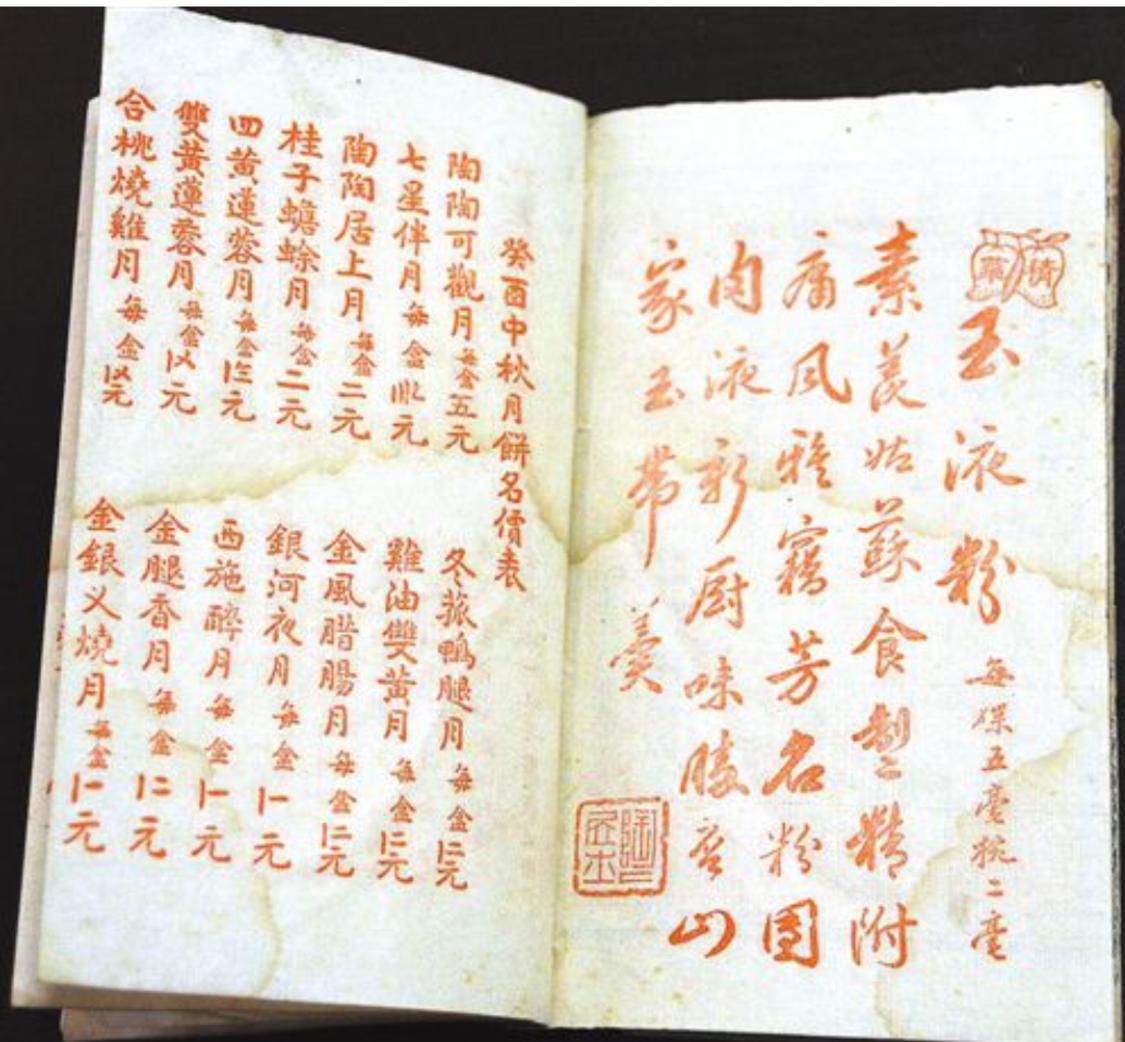 玉液粉 每碟五毫碗二毫
素羨姑蘇食製精附
庸風雅竊芳名粉團
肉液新厨味勝山
家玉帶羹
癸酉中秋月餅名價表
陶陶可觀月每盒五元
七星伴月每盒元
陶陶居上月每盒二元
桂子蟾蜍月每盒二元
四黃蓮蓉月每盒〡三元
雙黃蓮蓉月每盒〡〤元
合桃燒雞月每盒〡〤元
冬菰鴨腿月每盒〡二元
雞油雙黃月每盒〡二元
金風腊腸月每盒〡二元
銀河夜月每盒〡一元
西施醉月每盒〡一元
金腿香月每盒〡二元
金銀义燒月每盒〡一元